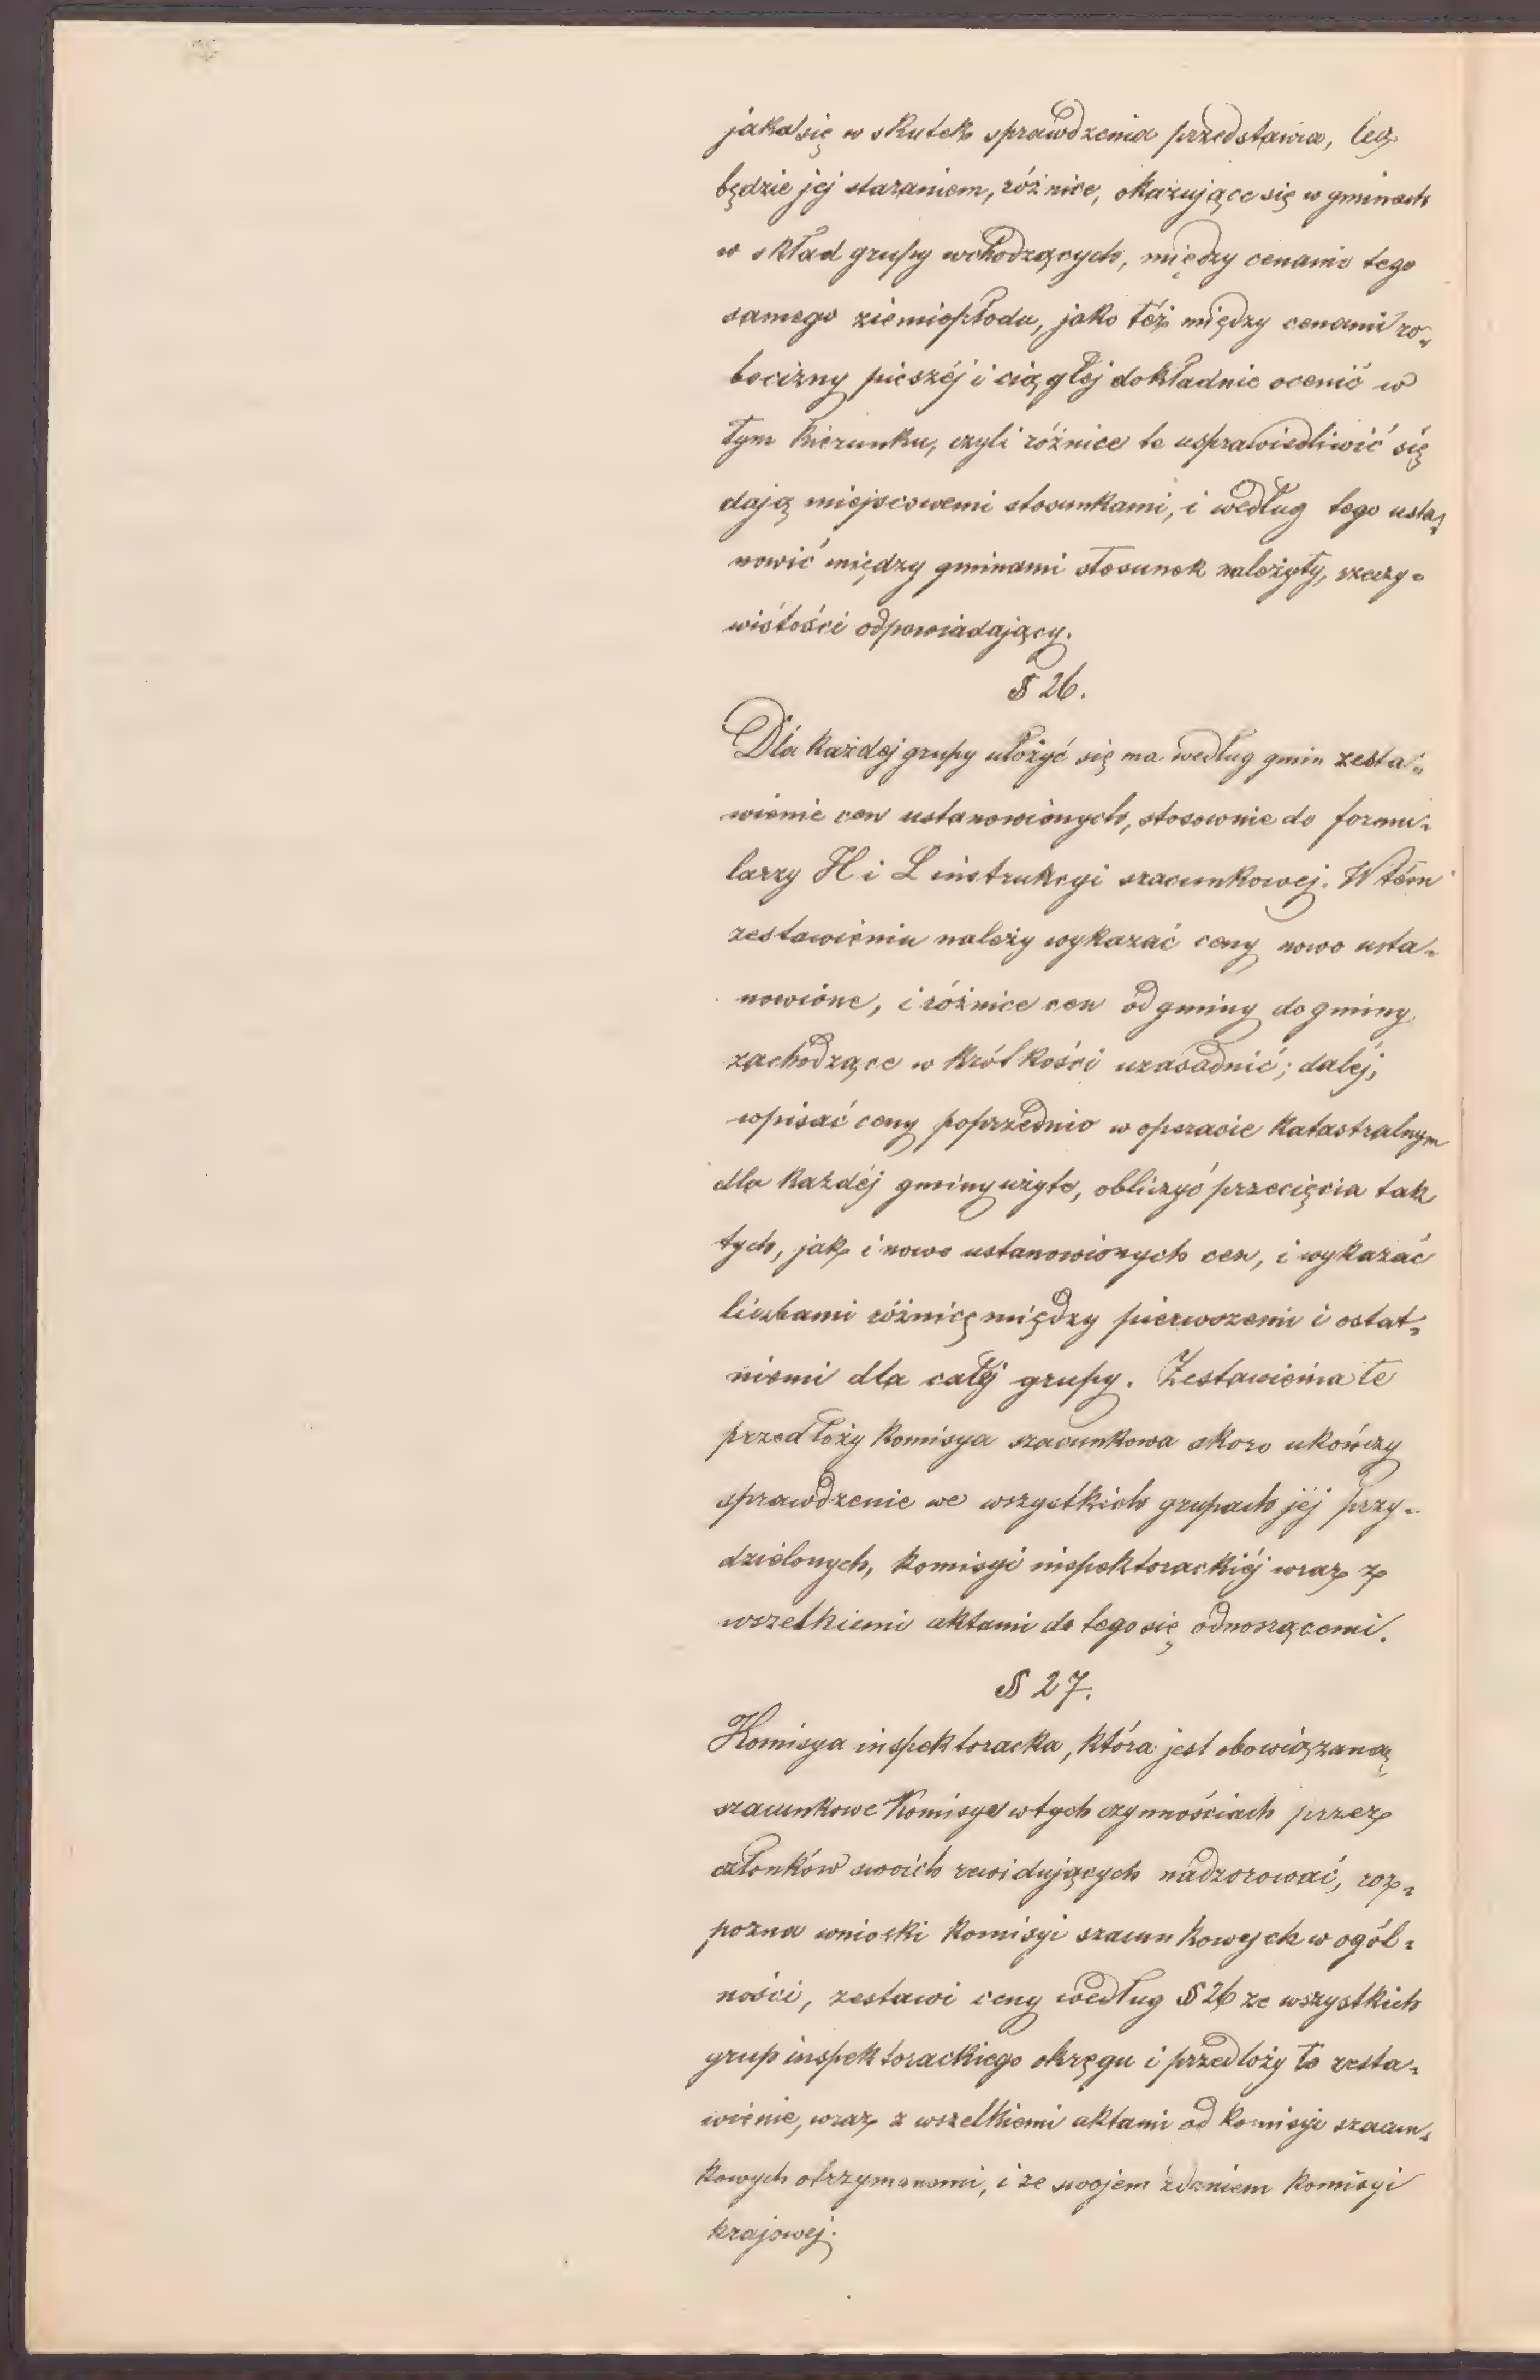 jaka się w skutek sprawdzenia przedstawia, lecz
będzie jej staraniem, różnice, okazujące się w gminach
w skład grupy wchodzących, między cenami tego
samego ziemiopłodu, jako też między cenami ro-
bocizny pieszéj i ciągłéj dokładnie ocenić w
tym kierunku, czyli różnice te usprawiedliwić się
dają miejscowemi stosunkami, i według tego usta-
nowić między gminami stosunek należyty, rzeczy-
wistości odpowiadający.
§ 26.
Dla każdej grupy ułożyć się ma według gmin zesta-
wienie cen ustanowionych, stosownie do formu-
larzy H i L instrukcyi szacunkowej. W tém
zestawieniu należy wykazać ceny nowo usta-
nowione, i różnice cen od gminy do gminy
zachodzące w krótkości uzasadnić; daléj,
wpisać ceny poprzednio w operacie katastralnym
dla każdéj gminy użyte, obliczyć przecięcia tak
tych, jak i nowo ustanowionych cen, i wykazać
liczbami różnicę między pierwszemi i ostat-
niemi dla całéj grupy. Zestawienia te
przedłoży komisya szacunkowa skoro ukończy
sprawdzenie we wszystkich grupach jéj przy-
dzielonych, komisyi inspektorackiéj wraz z
wszelkiemi aktami do tego się odnoszącemi.
§ 27.
Komisya inspektoracka, która jest obowiązaną
szacunkowe Komisye w tych czynnościach przez
członków swoich rewidujących nadzorować, roz-
pozna wnioski komisyi szacunkowych w ogól-
ności, zestawi ceny według § 26 ze wszystkich
grup inspektorackiego okręgu i przedłoży to zesta-
wienie, wraz z wszelkiemi aktami od komisyi szacun-
kowych otrzymanemi, i ze swojem zdaniem komisyi
krajowej.